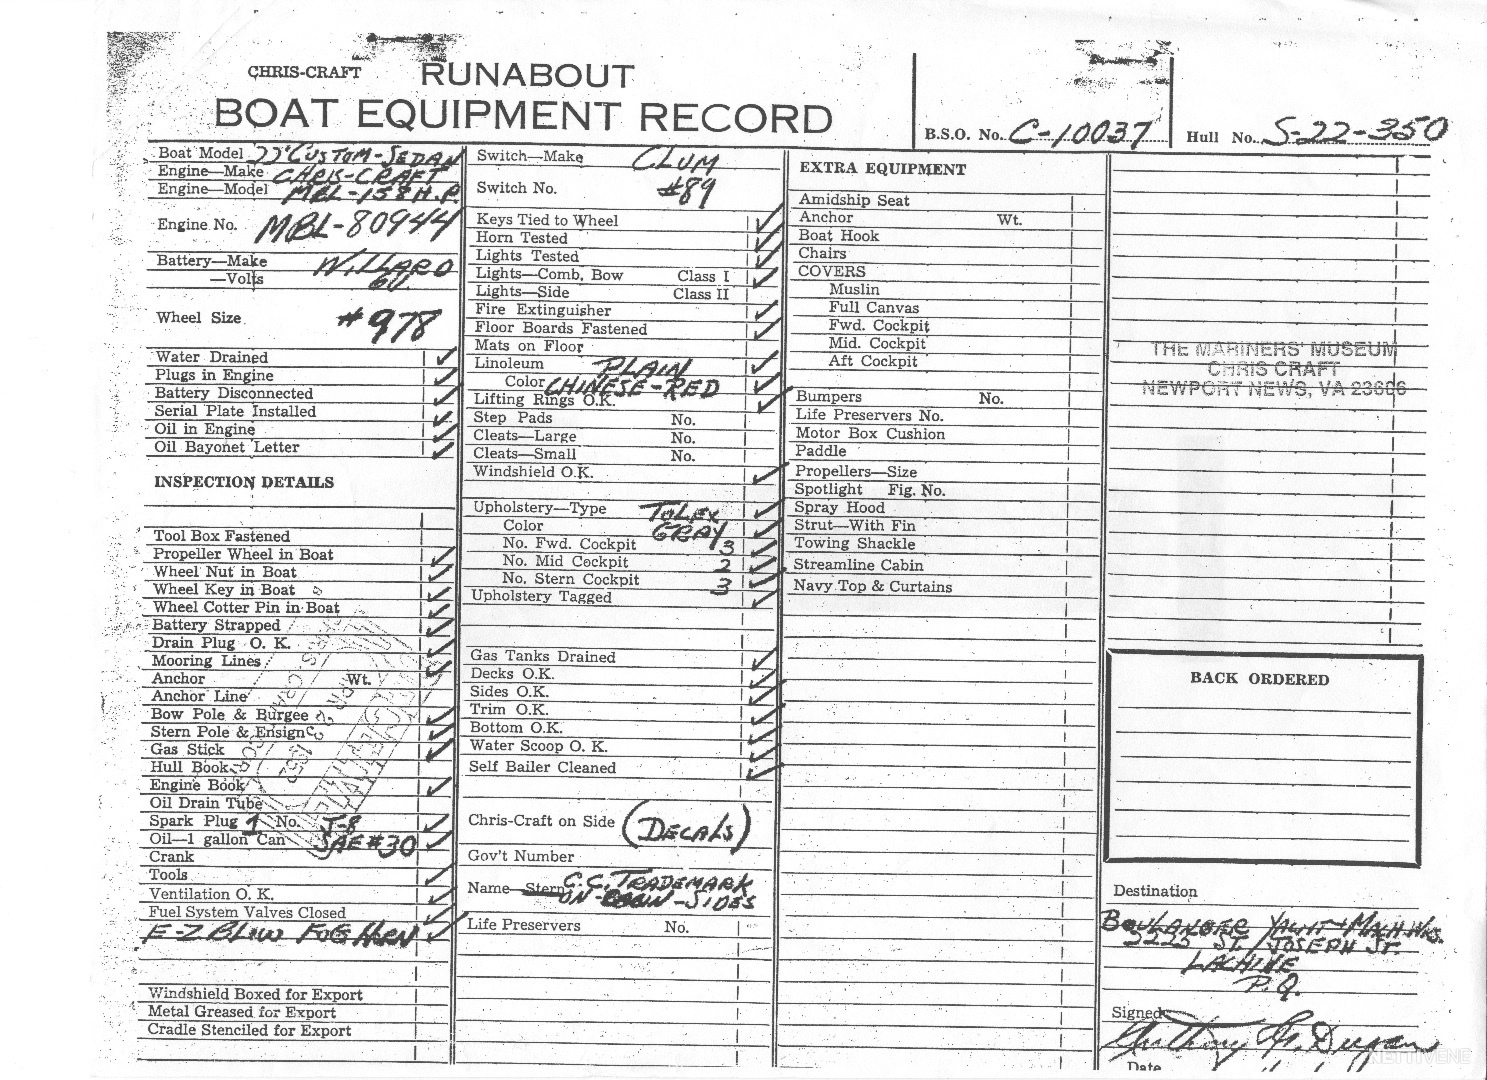 CHRIS-CRAFT RUNABOUT
BOAT EQUIPMENT RECORD
B.S.O. No. C-10037
Hull No. S-22-350
Boat Model 22' CUSTOM-SEDAN
Engine—Make CHRIS-CRAFT
Engine—Model MBL-158 H.P.
Engine No. MBL-80944
Battery—Make WILLARD
—Volts 6V
Wheel Size #978
Water Drained
Plugs in Engine
Battery Disconnected
Serial Plate Installed
Oil in Engine
Oil Bayonet Letter
INSPECTION DETAILS
Tool Box Fastened
Propeller Wheel in Boat
Wheel Nut in Boat
Wheel Key in Boat
Wheel Cotter Pin in Boat
Battery Strapped
Drain Plug O. K.
Mooring Lines
Anchor Wt.
Anchor Line
Bow Pole & Burgee
Stern Pole & Ensign
Gas Stick
Hull Book
Engine Book
Oil Drain Tube
Spark Plug 1 No. J-8
Oil—1 gallon Can SAE #30
Crank
Tools
Ventilation O. K.
Fuel System Valves Closed
E-Z BLOW FOG HORN
Windshield Boxed for Export
Metal Greased for Export
Cradle Stenciled for Export
Switch—Make CLUM
Switch No. #89
Keys Tied to Wheel
Horn Tested
Lights Tested
Lights—Comb. Bow Class I
Lights—Side Class II
Fire Extinguisher
Floor Boards Fastened
Mats on Floor
Linoleum PLAIN
Color CHINESE-RED
Lifting Rings O.K.
Step Pads No.
Cleats—Large No.
Cleats—Small No.
Windshield O.K.
Upholstery—Type TOLEX
Color GRAY
No. Fwd. Cockpit 3
No. Mid Cockpit 2
No. Stern Cockpit 3
Upholstery Tagged
Gas Tanks Drained
Decks O.K.
Sides O.K.
Trim O.K.
Bottom O.K.
Water Scoop O. K.
Self Bailer Cleaned
Chris-Craft on Side (DECALS)
Gov't Number
Name—Stern C.C. TRADEMARK
ON SIDES
Life Preservers No.
EXTRA EQUIPMENT
Amidship Seat
Anchor Wt.
Boat Hook
Chairs
COVERS
Muslin
Full Canvas
Fwd. Cockpit
Mid. Cockpit
Aft Cockpit
Bumpers No.
Life Preservers No.
Motor Box Cushion
Paddle
Propellers—Size
Spotlight Fig. No.
Spray Hood
Strut—With Fin
Towing Shackle
Streamline Cabin
Navy Top & Curtains
THE MARINERS' MUSEUM
CHRIS CRAFT
NEWPORT NEWS, VA 23606
BACK ORDERED
Destination
BOULANGER YACHT & MACH. WKS.
2225 ST. JOSEPH ST.
LACHINE
P.Q.
Signed
Date
NETTIVENE